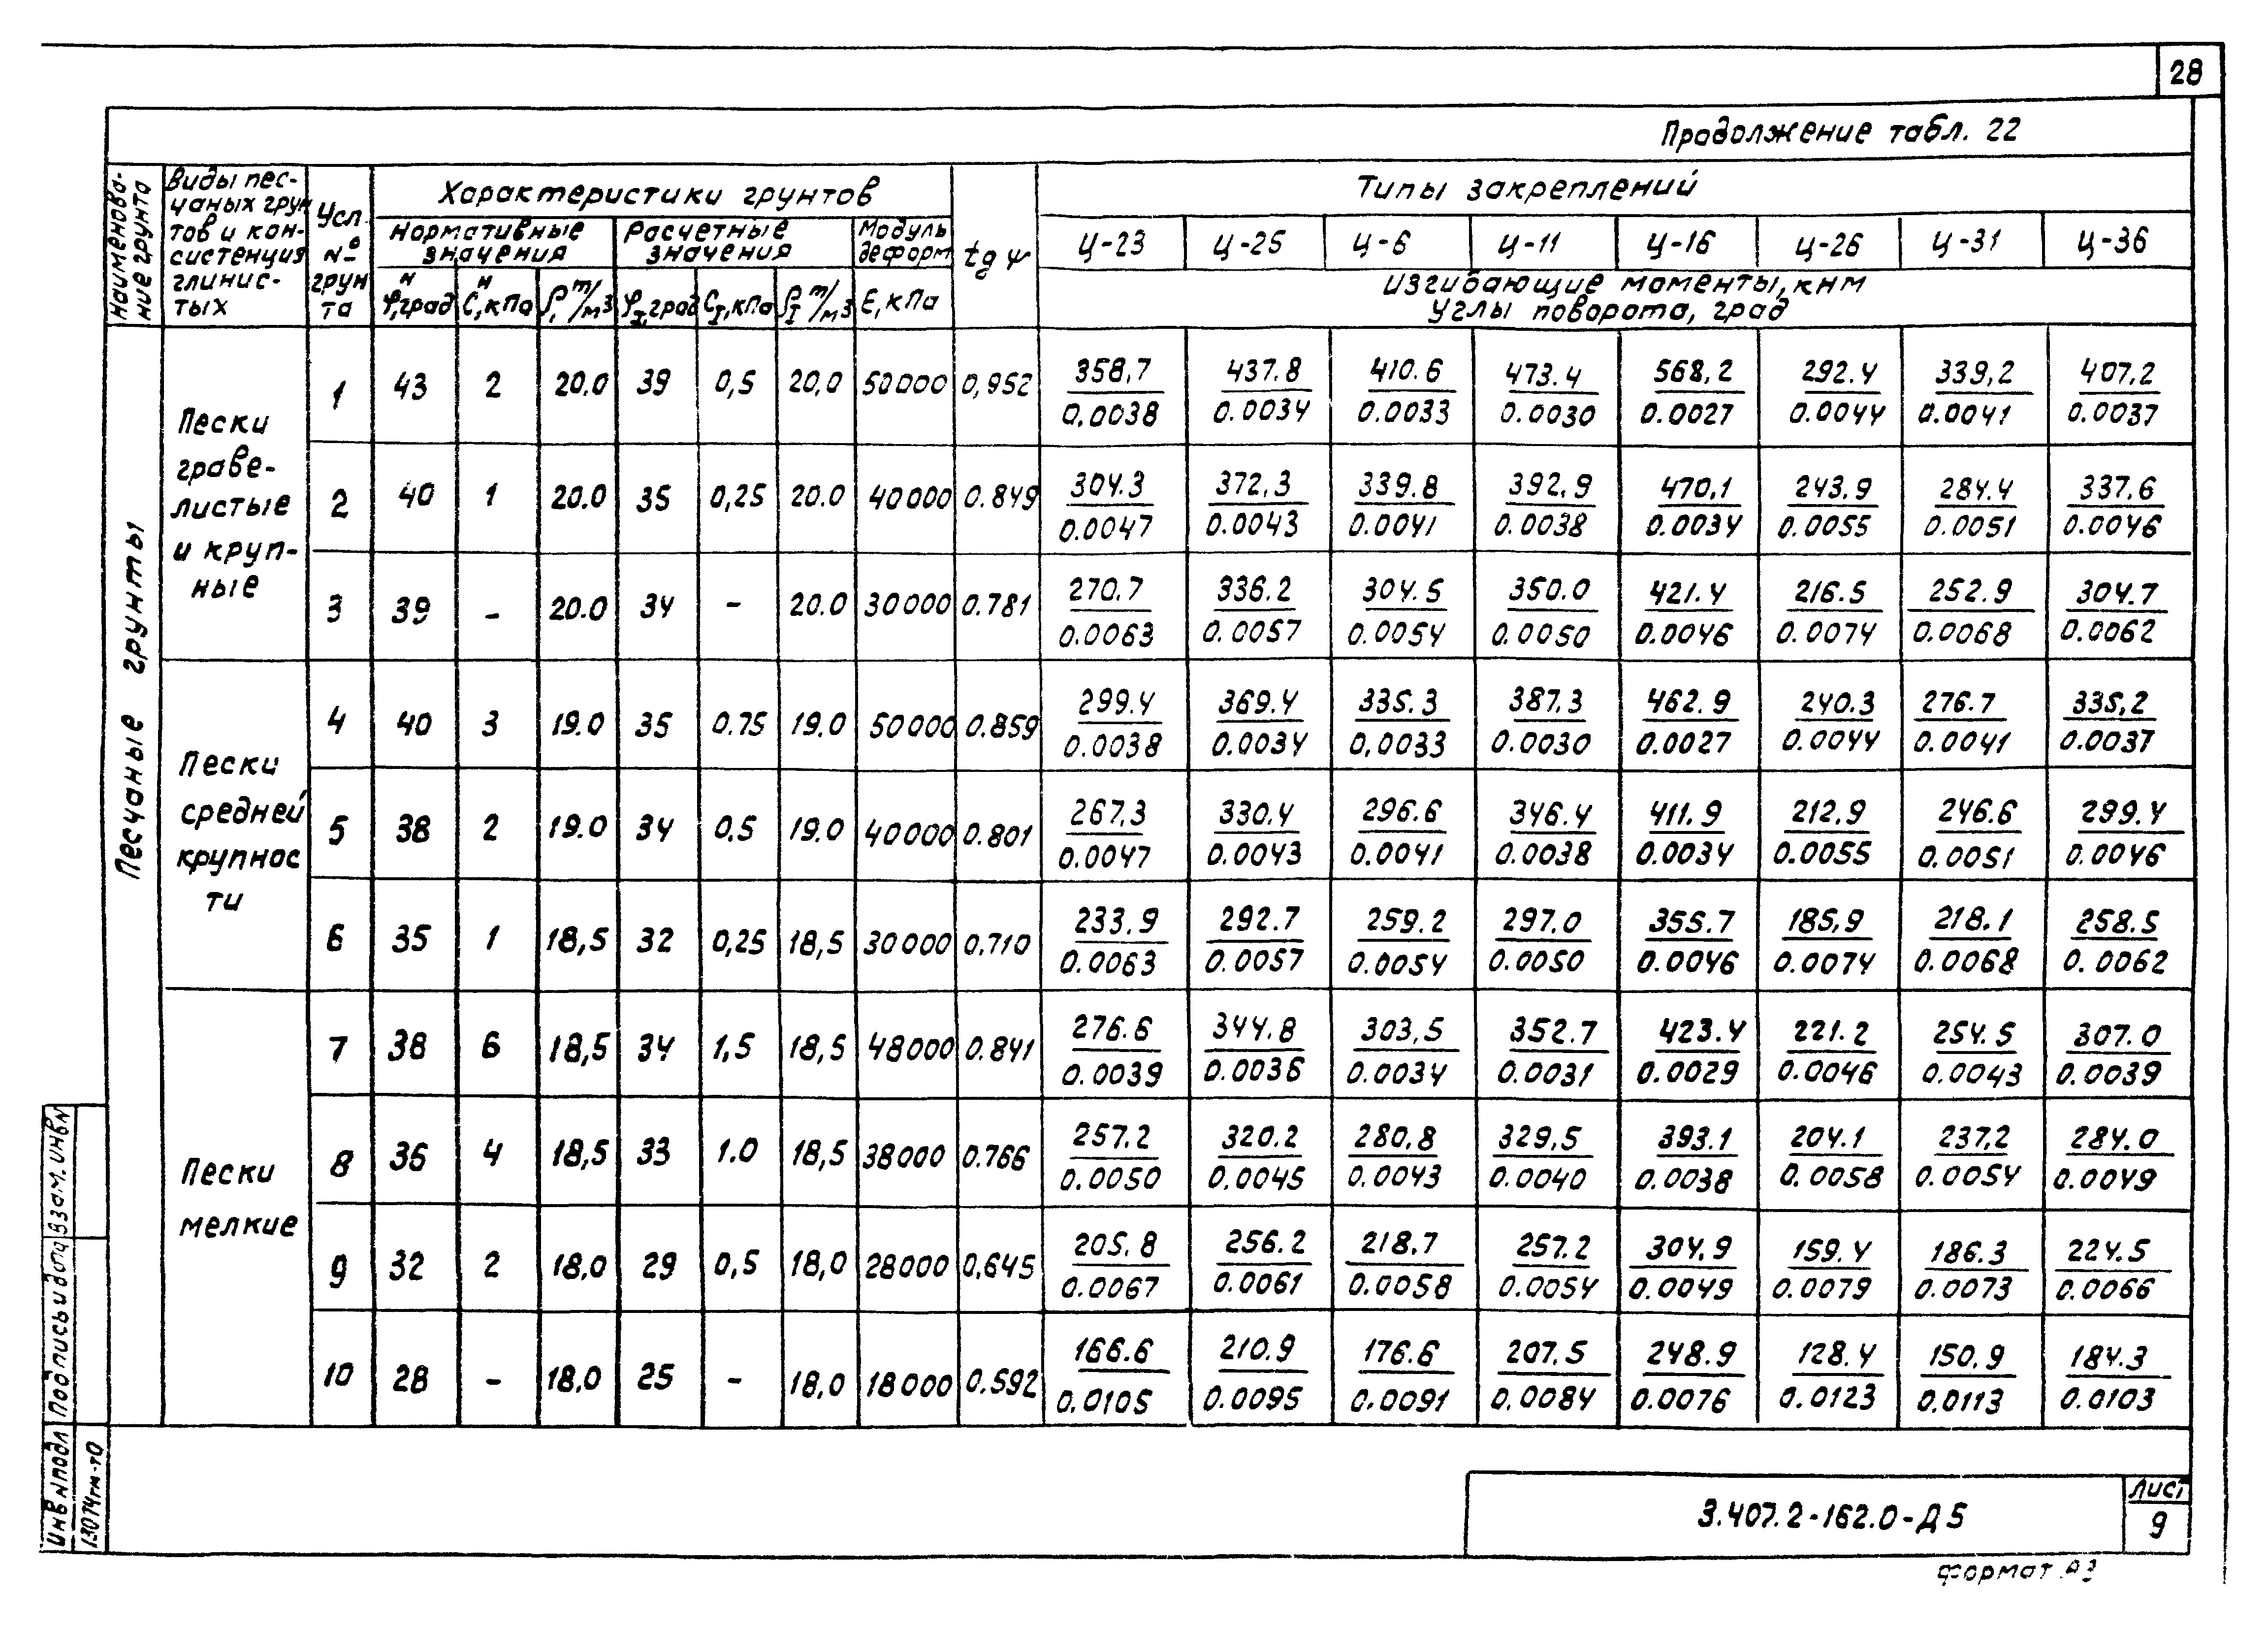 28
Продолжение табл. 22
Наименова-
ние грунта
Виды пес-
чаных грун
тов и кон-
систенция
глинис-
тых
Усл.
№
грун
та
Характеристики грунтов
Нормативные
значения
Расчетные
значения
Модуль
деформ
φᴴ, град
Cᴴ, кПа
ρ, т/м3
φI, град
CI, кПа
ρI т/м3
E, кПа
tg ψ
Типы закреплений
Ц-23 Ц-25 Ц-6 Ц-11 Ц-16 Ц-26 Ц-31 Ц-36
Изгибающие моменты, кнм
Углы поворота, град
Песчаные грунты
Пески
граве-
листые
и круп-
ные
1 43 2 20.0 39 0,5 20,0 50000 0,952 358,7 437.8 410.6 473.4 568,2 292.4 339,2 407,2
0.0038 0.0034 0.0033 0.0030 0.0027 0.0044 0.0041 0.0037
2 40 1 20.0 35 0,25 20.0 40000 0.849 304.3 372,3 339.8 392,9 470,1 243.9 284.4 337.6
0.0047 0.0043 0.0041 0.0038 0.0034 0.0055 0.0051 0.0046
3 39 - 20.0 34 - 20.0 30000 0.781 270.7 336.2 304.5 350.0 421.4 216.5 252.9 304.7
0.0063 0.0057 0.0054 0.0050 0.0046 0.0074 0.0068 0.0062
Пески
средней
крупнос
ти
4 40 3 19.0 35 0.75 19.0 50000 0.859 299.4 369.4 335.3 387.3 462.9 240.3 276.7 335,2
0.0038 0.0034 0,0033 0.0030 0.0027 0.0044 0.0041 0.0037
5 38 2 19.0 34 0,5 19.0 40000 0.801 267,3 330,4 296.6 346.4 411.9 212.9 246.6 299.4
0.0047 0.0043 0.0041 0.0038 0.0034 0.0055 0.0051 0.0046
6 35 1 18,5 32 0,25 18,5 30000 0.710 233,9 292.7 259.2 297.0 355.7 185,9 218.1 258.5
0.0063 0.0057 0.0054 0.0050 0.0046 0.0074 0.0068 0.0062
Пески
мелкие
7 38 6 18,5 34 1,5 18,5 48000 0.841 276.6 344.8 303,5 352.7 423.4 221.2 254.5 307.0
0.0039 0.0036 0.0034 0.0031 0.0029 0.0046 0.0043 0.0039
8 36 4 18,5 33 1.0 18,5 38000 0.766 257.2 320.2 280,8 329,5 393.1 204.1 237,2 284.0
0.0050 0.0045 0.0043 0.0040 0.0038 0.0058 0.0054 0.0049
9 32 2 18,0 29 0,5 18,0 28000 0,645 205.8 256.2 218,7 257.2 304,9 159.4 186.3 224.5
0.0067 0.0061 0.0058 0.0054 0.0049 0.0079 0.0073 0.0066
10 28 - 18,0 25 - 18,0 18000 0.592 166.6 210.9 176.6 207.5 248.9 128.4 150.9 184.3
0.0105 0.0095 0.0091 0.0084 0.0076 0.0123 0.0113 0.0103
Взам. инв N
Подпись и дата
Инв N подл
13074тм-т0
3.407.2-162.0-Д5
Лист
9
Формат А3